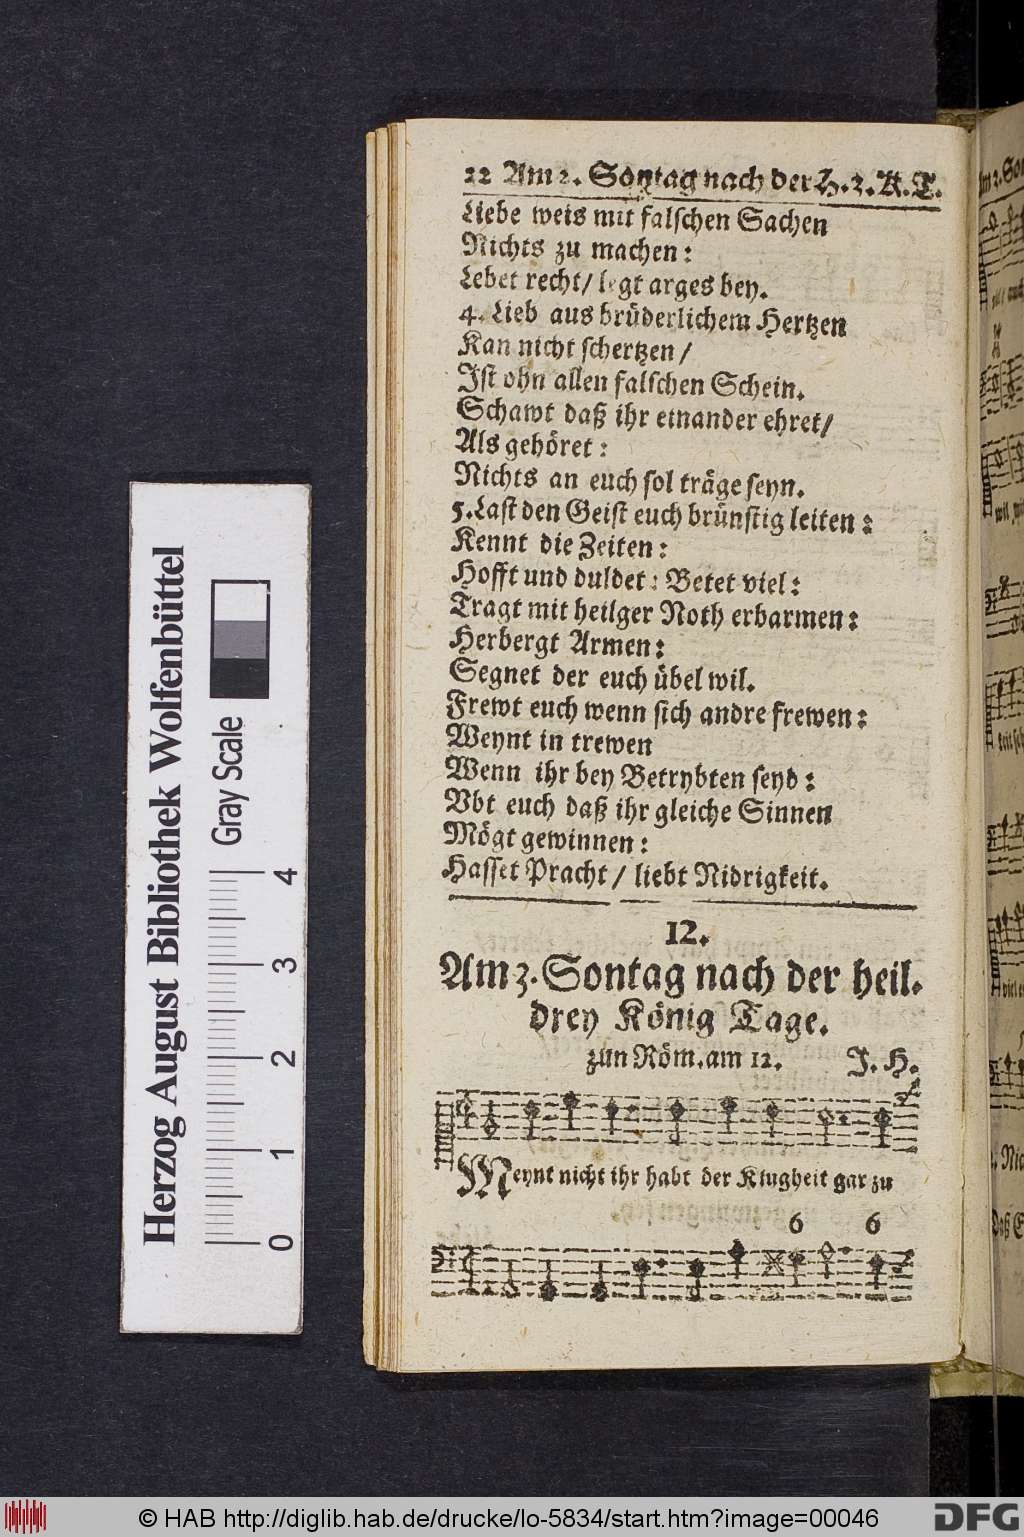 22 Am 2. Sontag nach der H. 3. K. T.
Liebe weis mit falschen Sachen
Nichts zu machen:
Lebet recht/ legt arges bey.
4. Lieb aus brüderlichem Hertzen
Kan nicht schertzen/
Ist ohn allen falschen Schein.
Schawt daß ihr einander ehret/
Als gehöret:
Nichts an euch sol träge seyn.
5. Last den Geist euch brünstig leiten:
Kennt die Zeiten:
Hofft und duldet: Betet viel:
Tragt mit heilger Noth erbarmen:
Herbergt Armen:
Segnet der euch übel wil.
Frewt euch wenn sich andre frewen:
Weynt in trewen
Wenn ihr bey Betrybten seyd:
Vbt euch daß ihr gleiche Sinnen
Mögt gewinnen:
Hasset Pracht/ liebt Nidrigkeit.
12.
Am 3. Sontag nach der heil.
drey König Tage.
zun Röm. am 12. J. H.
Meynt nicht ihr habt der Klugheit gar zu
6 6
Herzog August Bibliothek Wolfenbüttel
Gray Scale
0 1 2 3 4
© HAB http://diglib.hab.de/drucke/lo-5834/start.htm?image=00046
DFG